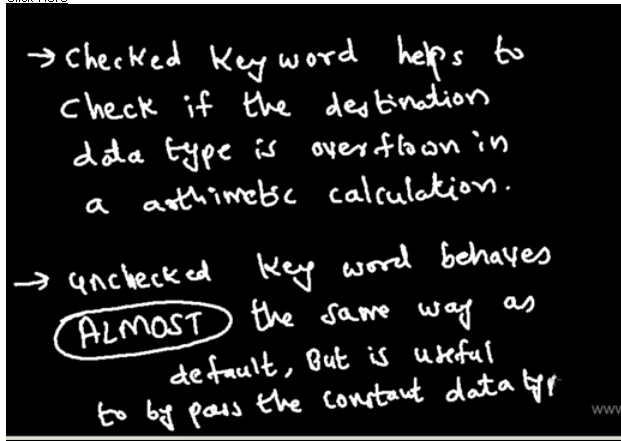 Click Here
→ Checked Key word helps to
Check if the destination
data type is overflown in
a arthimetic calculation.
→ unchecked Key word behaves
ALMOST the same way as
default, But is useful
to by pass the constant data typ
www